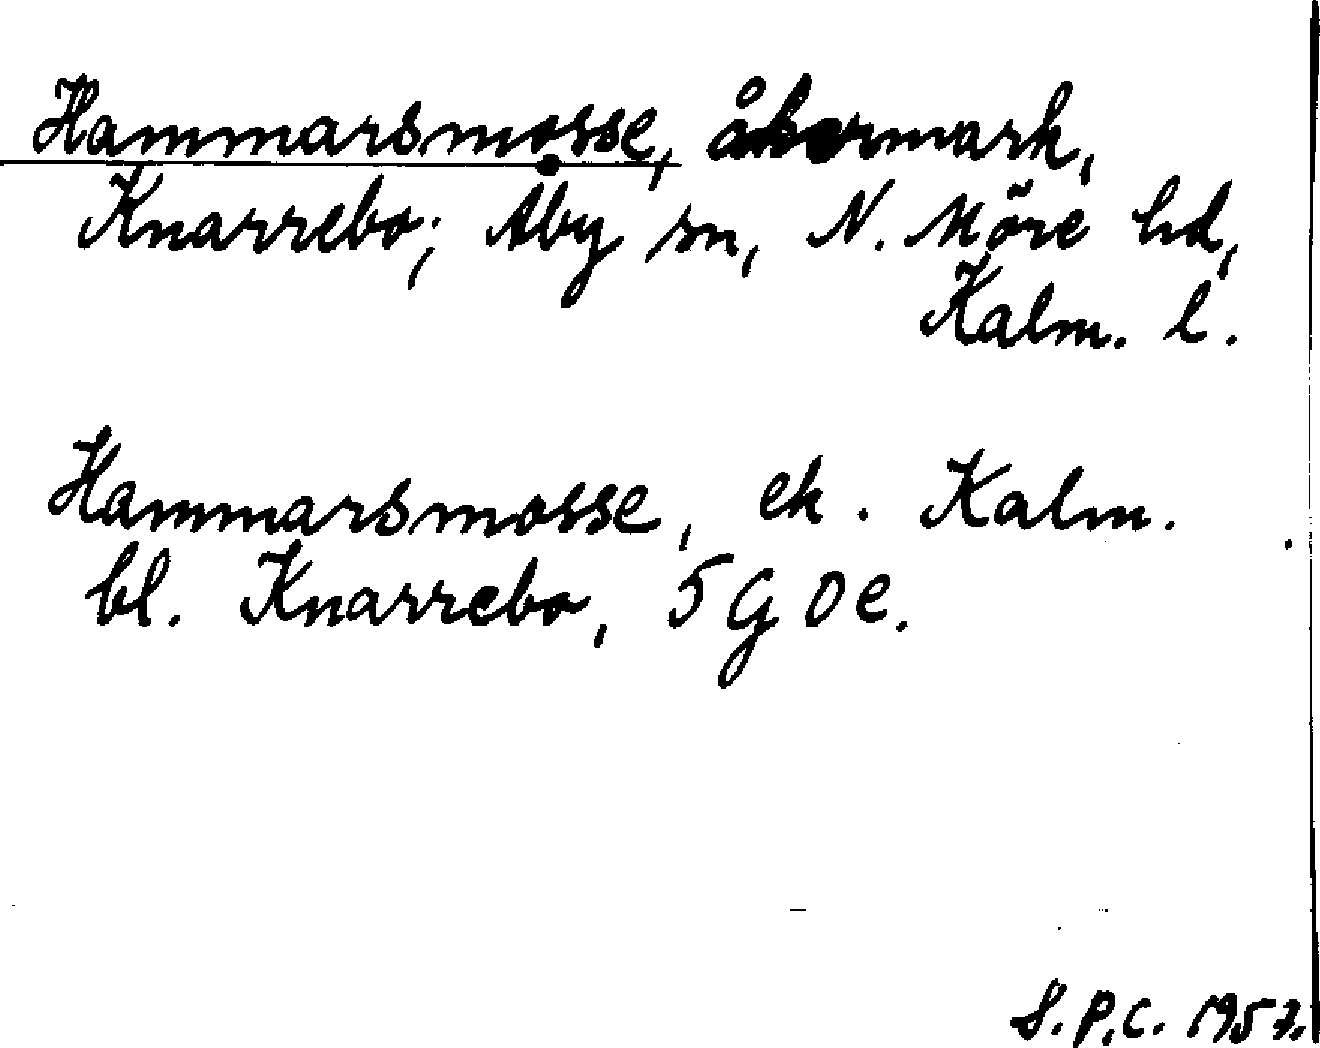 Hammarsmosse, åkermark,
Knarrebo; Åby sn, N. Möre hd,
Kalm. l.
Hammarsmosse, ek. Kalm.
bl. Knarrebo, 5 G 0 e.
S.P.C. 1957.